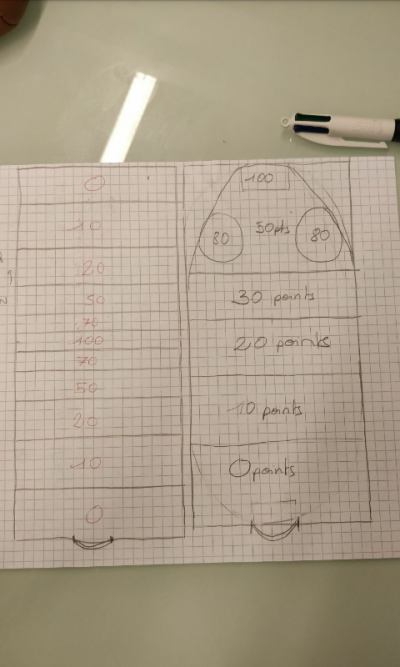 0
10
20
50
70
100
70
50
20
10
0
100
80
50pts
80
30 points
20 points
10 points
0 points